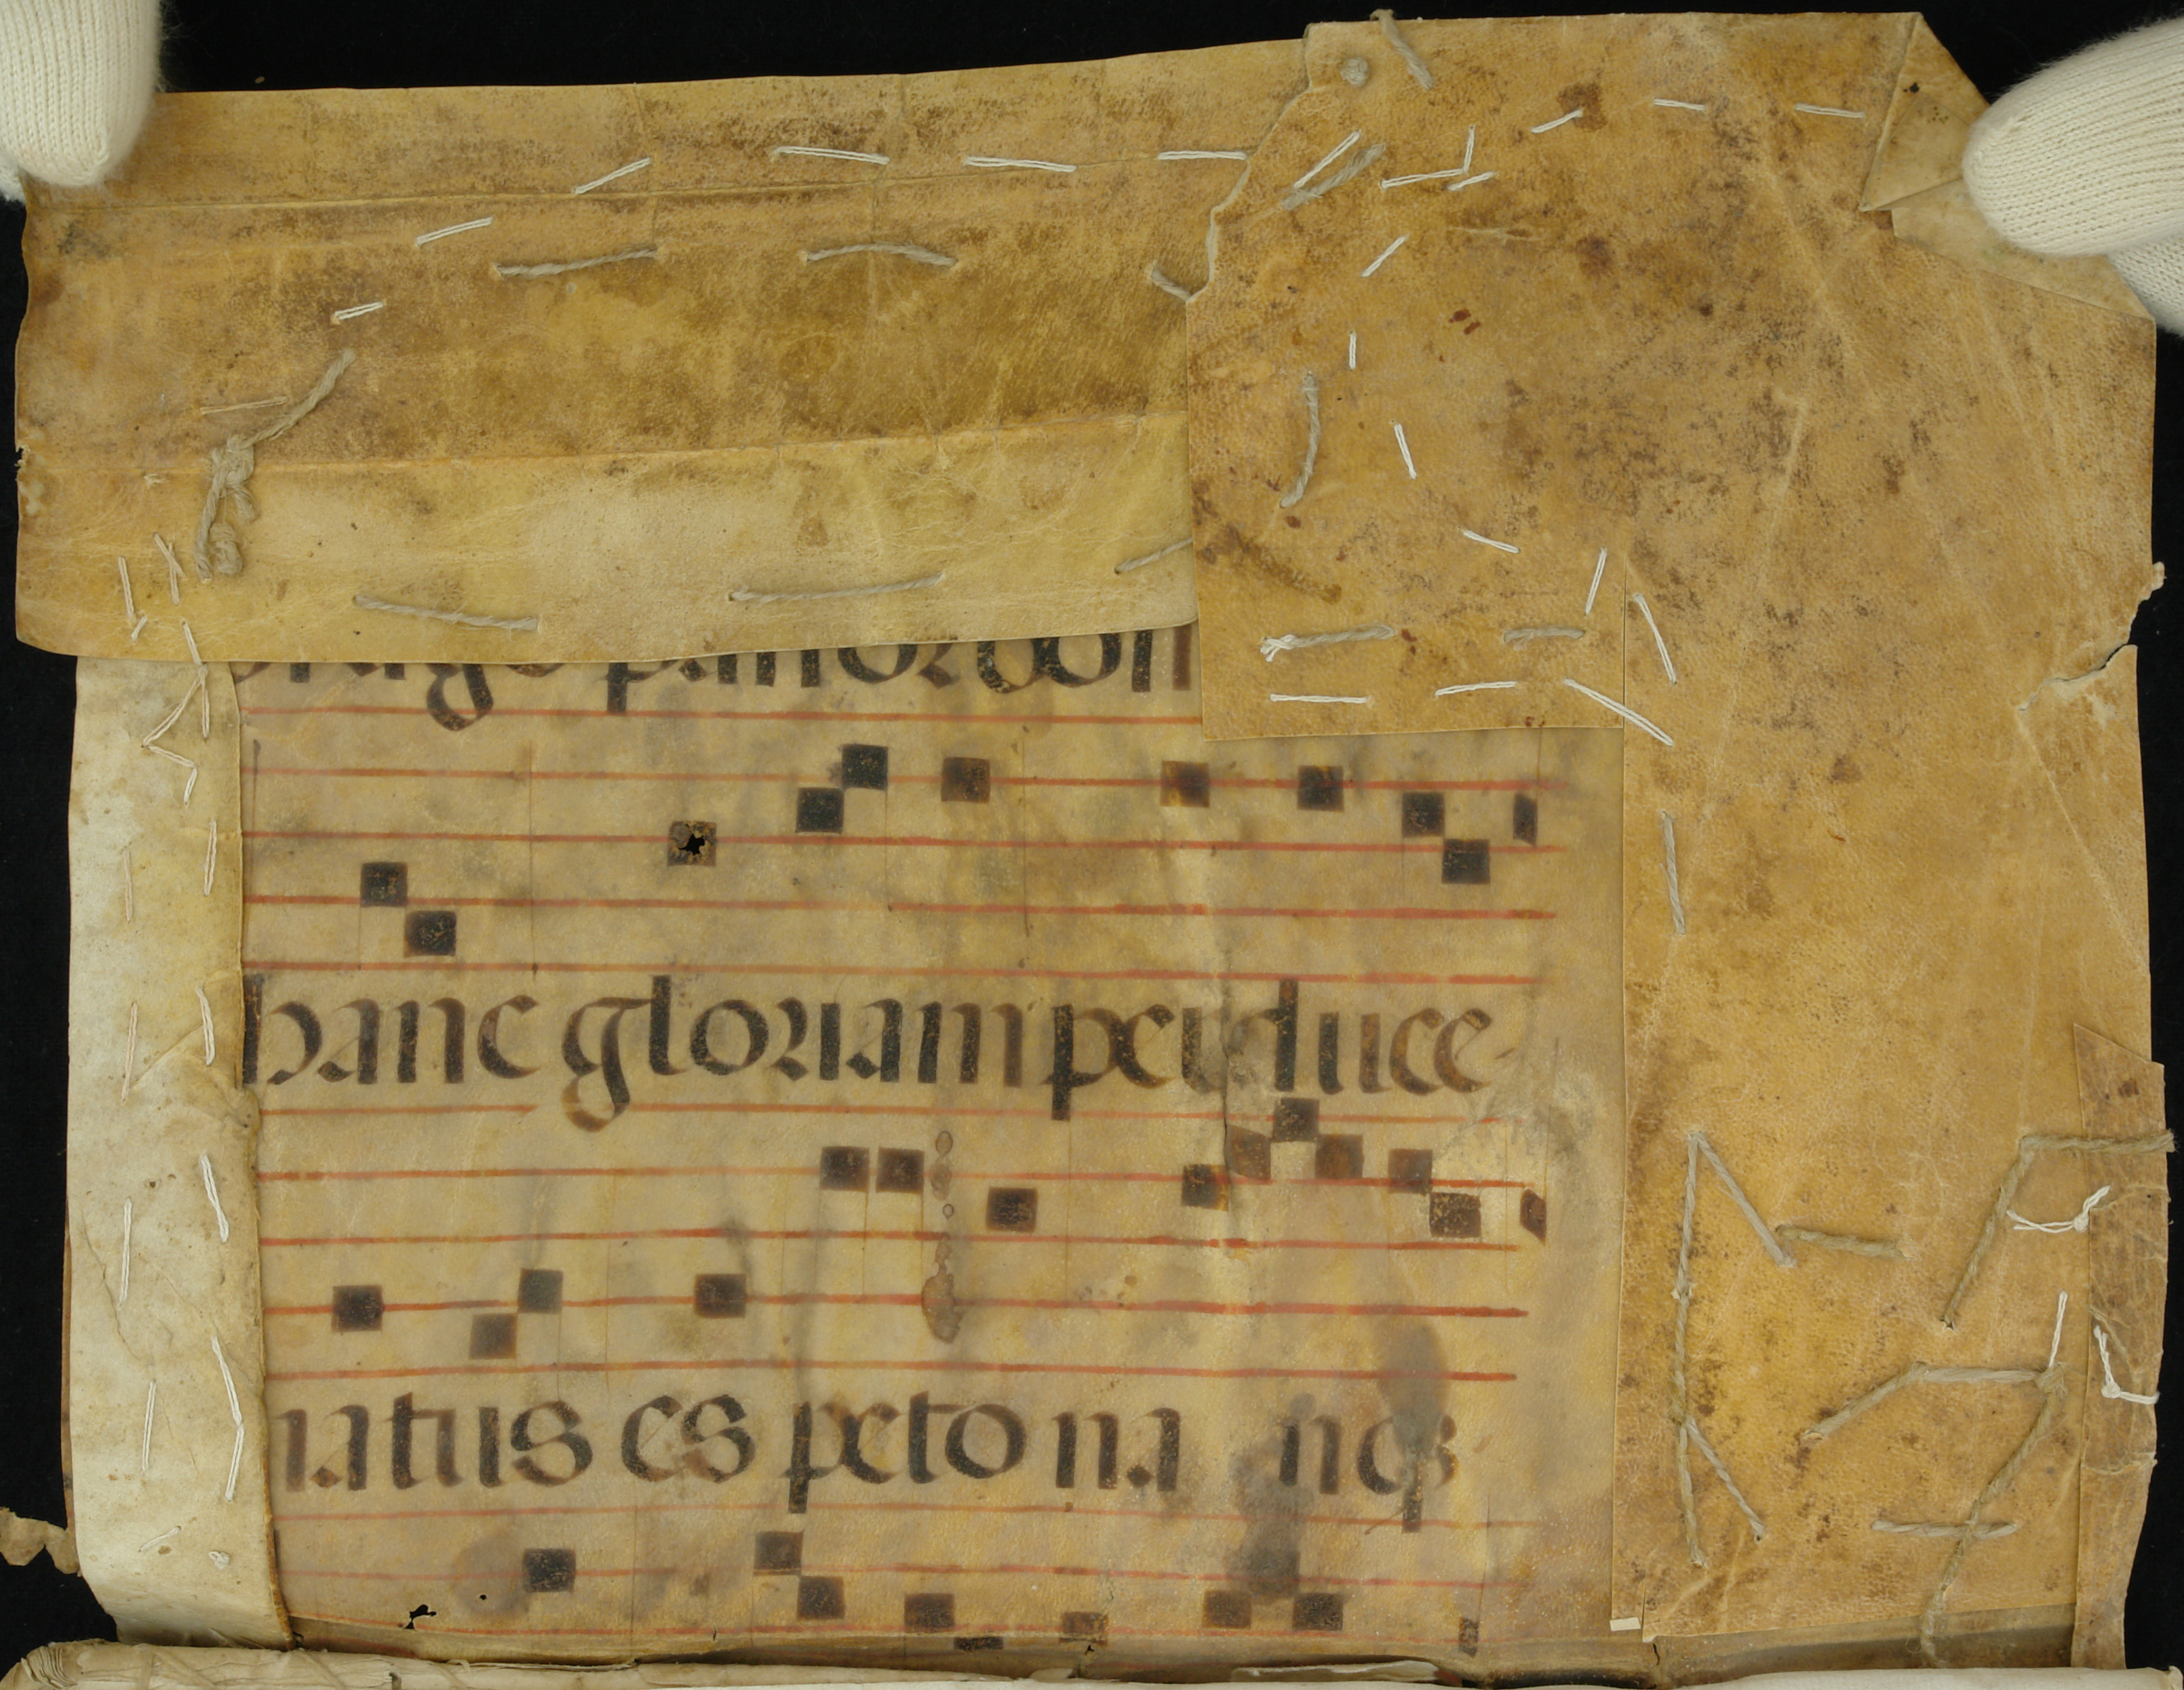 hanc gloriam perduce-
natus es peto na nqꝫ